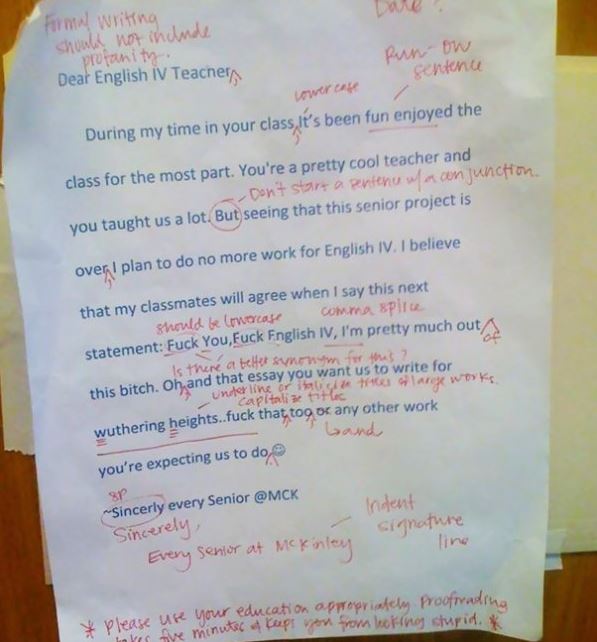 Formal writing
Date?
should not include
profanity.
Run-on
sentence
Dear English IV Teacher
lower case
During my time in your class,It's been fun enjoyed the
class for the most part. You're a pretty cool teacher and
Don't start a sentence w/ a conjunction.
you taught us a lot. But seeing that this senior project is
over, I plan to do no more work for English IV. I believe
that my classmates will agree when I say this next
should be lowercase
comma splice
statement: Fuck You,Fuck English IV, I'm pretty much out
of
Is there a better synonym for this?
this bitch. Oh, and that essay you want us to write for
underline or italicize titles of large works.
capitalize titles
wuthering heights..fuck that, too, or any other work
and
you're expecting us to do.☺
sp
~Sincerly every Senior @MCK
Sincerely,
Indent
signature
line
Every Senior at McKinley
* Please use your education appropriately. Proofreading
takes five minutes & keeps you from looking stupid. *